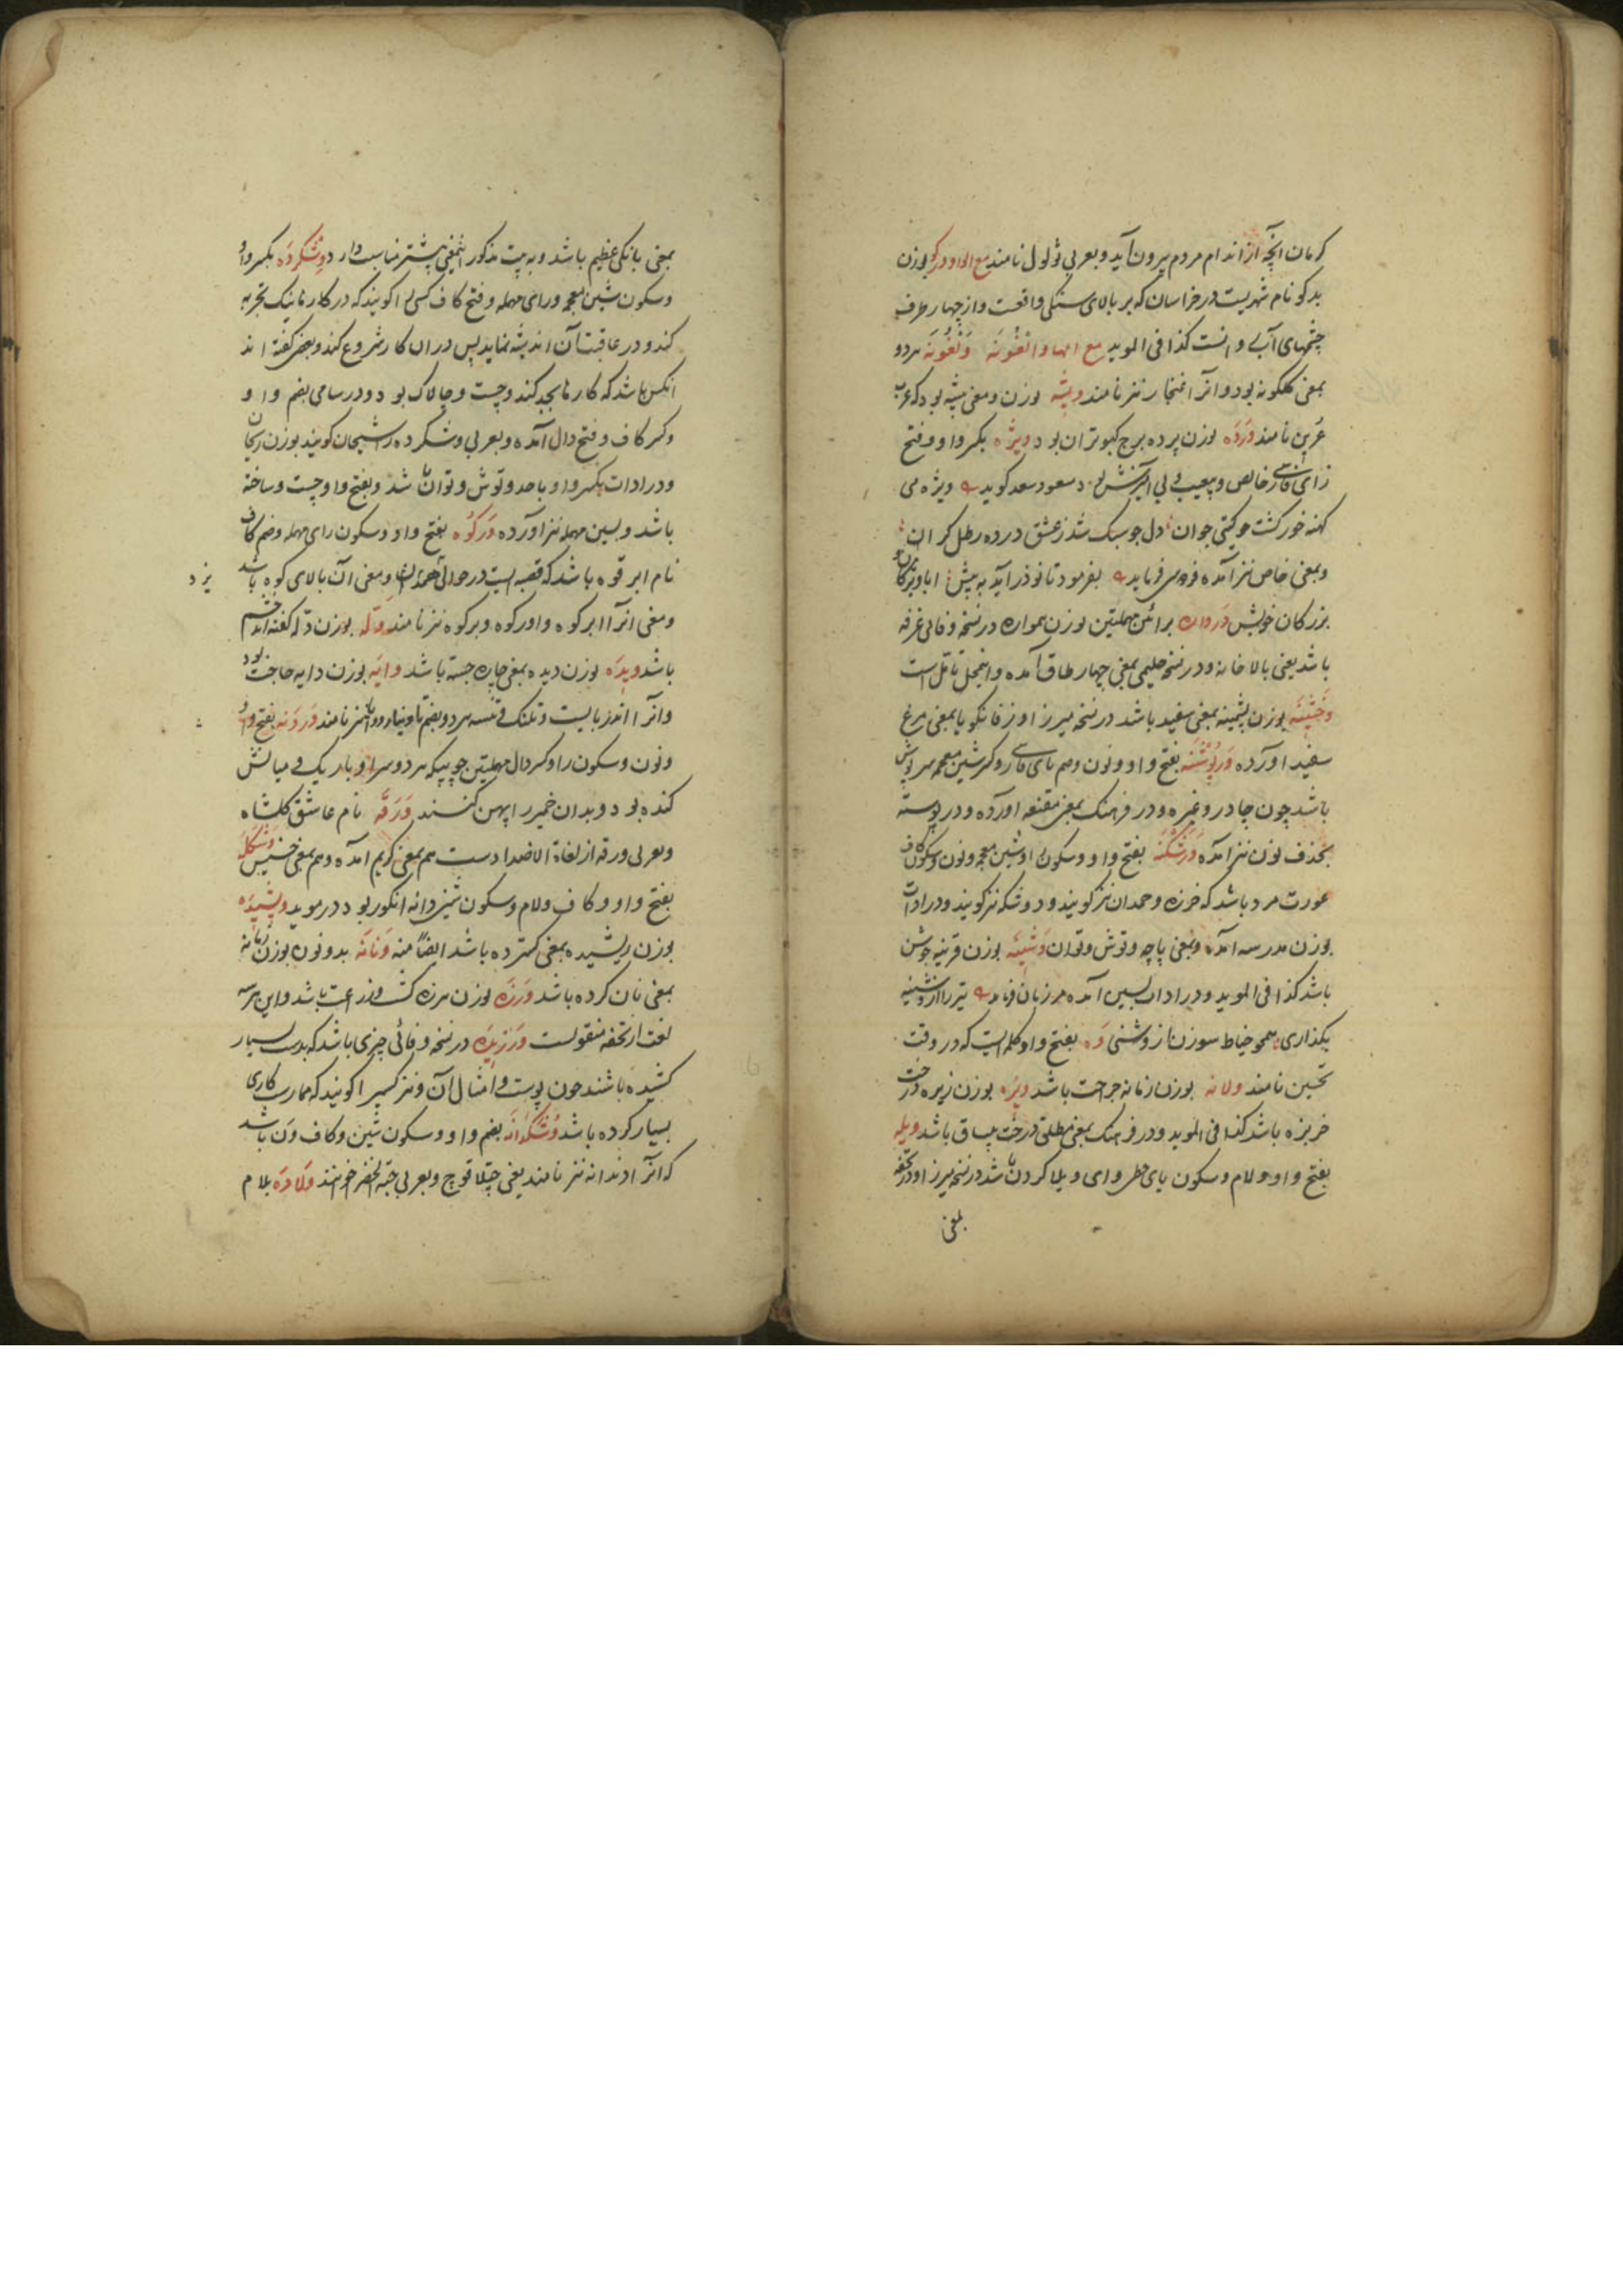 کرمان آنچه از اندام مردم بیرون آید و بعربی ثولول نامند مع الواو ورکو بوزن
بدکو نام شهریست در خراسان که بر بالای سنکی واقعست و از چهار طرف
چشمهای آب روانست کذا فی الموید مع الها وانغونه ونغونه هردو
بمعنی کلکونه بود و آنرا غنجار نیز نامند ویشه بوزن و معنی بیشه بود که عرب
عرین نامند ورده بوزن پرده برج کبوتران بود ویژه بکسر واو و فتح
زای فارسی خالص و بیعیب و بی آمیزش بود مسعود سعد کوید ویژه می
کهنه خور کشت چو کیتی جوان دل چو سبک شد زعشق در ده رطل کران
و بمعنی خاص نیز آمده فردوسی فرماید بفرمود تا نوذر آید به پیش ابا ویژکان و
بزرکان خویش ورواره برائین مهملتین بوزن همواره در نسخه وفائی غرفه
باشد یعنی بالا خانه و در نسخه حلیمی بمعنی چهار طاق آمده و اینمحل تأمل است
وخشینه بوزن پشمینه بمعنی سفید باشد در نسخه میرزا و زفانکویا بمعنی مرغ
سفید آورده ورپوشنه بفتح واو و نون و ضم بای فارسی و کسر شین معجمه سرپوش
باشد چون چادر و غیره و در فرهنک بمعنی مقنعه آورده و در پوسته
بحذف نون نیز آمده ورشکنه بفتح واو و سکون را و شین معجمه و نون و سکون کاف
عورت مرد باشد که خرزه و حمدان نیز کویند و وشکه نیز کویند و در ادات
بوزن مدرسه آمده و بمعنی پاچه و توش و توان وشینه بوزن قرینه جوشن
باشد کذا فی الموید و در ادات بسین آمده تیر را از وشینه
بکذاری همچو خیاط سوزن از وشنی وه بفتح واو کلمه ایست که در وقت
تحسین نامند ولانه بوزن زمانه جراحت باشد ویزه بوزن زیره درخت
خربزه باشد کذا فی الموید و در فرهنک بمعنی مطلق درخت بیساق باشد ویله
بفتح واو و لام و سکون یای حطی وای ویلا کردن باشد در نسخه میرزا و در تحفه
بمعنی
بمعنی بانکی عظیم باشد و به بیت مذکور اینمعنی بیشتر مناسبت دارد وشکرده بکسر واو
و سکون شین معجمه و رای مهمله و فتح کاف کسی را کویند که در کارها نیک تجربه
کند و در عاقبت آن اندیشه نماید پس در ان کار شروع کند و بعضی کفته اند
آنکس باشد که کارها بجد کند و چست و چالاک بود و در سامی بضم واو
و کسر کاف و فتح دال آمده و بعربی وشکرده را شیحان کویند بوزن ریحان
و در ادات بکسر واو با صد و توش و توان باشد و بفتح واو چست و ساخته
باشد و بسین مهمله نیز آورده ورکوه بفتح واو و سکون رای مهمله و ضم کاف
نام ابرقوه باشد که قصبه ایست در حوالی و معنی آن بالای کوه باشد
یزد
و معنی آنرا ابرکوه و اورکوه و برکوه نیز نامند وکه بوزن دله کفته اند خشم
باشد ویده بوزن دیده بمعنی چاره جسته باشد وایه بوزن دایه حاجت بود
و آنرا اندر بایست و تلنک و نیز نامند وردنه بفتح واو
و نون و سکون را و کسر دال مهملتین چوبیکه هر دو سر او باریک و میانش
کنده بود و بدان خمیر را پهن کنند ورقه نام عاشق کلشاه
و بعربی ورقه از لغات الاضداد ست هم بمعنی کریم آمده و هم بمعنی خسیس وشکله
بفتح واو و کاف و لام و سکون شین دانه انکور بود در موید ویشیده
بوزن ریشیده بمعنی کسترده باشد ایضا منه ونانه بدو نون بوزن زمانه
بمعنی نان کرده باشد ورزه بوزن هرزه کشت و زراعت باشد و این هرسه
لغت از تحفه منقولست ورزیده در نسخه وفائی چیزی باشد که بدست بسیار
کشیده باشند چون پوست و امثال آن و نیز کسیرا کویند که ممارست کاری
بسیار کرده باشد وشکدانه بضم واو و سکون شین و کاف ون باشد
که آنرا ون دانه نیز نامند یعنی چتلاقوچ و بعربی حبة الخضر خوانند ولاوه بلام